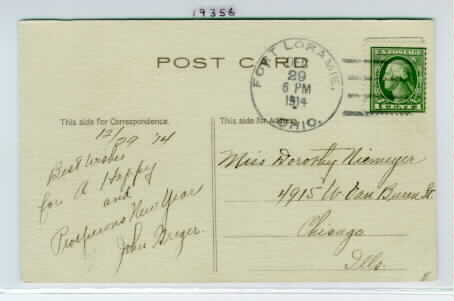 19356
POST CARD
FORT LORAMIE,
DEC
29
6 PM
1914
OHIO.
U.S. POSTAGE
1 CENT 1
This side for Correspondence.
This side for Address.
12/29 '14
Best Wishes
for A Happy
and
Prosperous New Year
John
Miss Dorothy Niemeyer
4915 W. Van Buren St
Chicago
Ills.